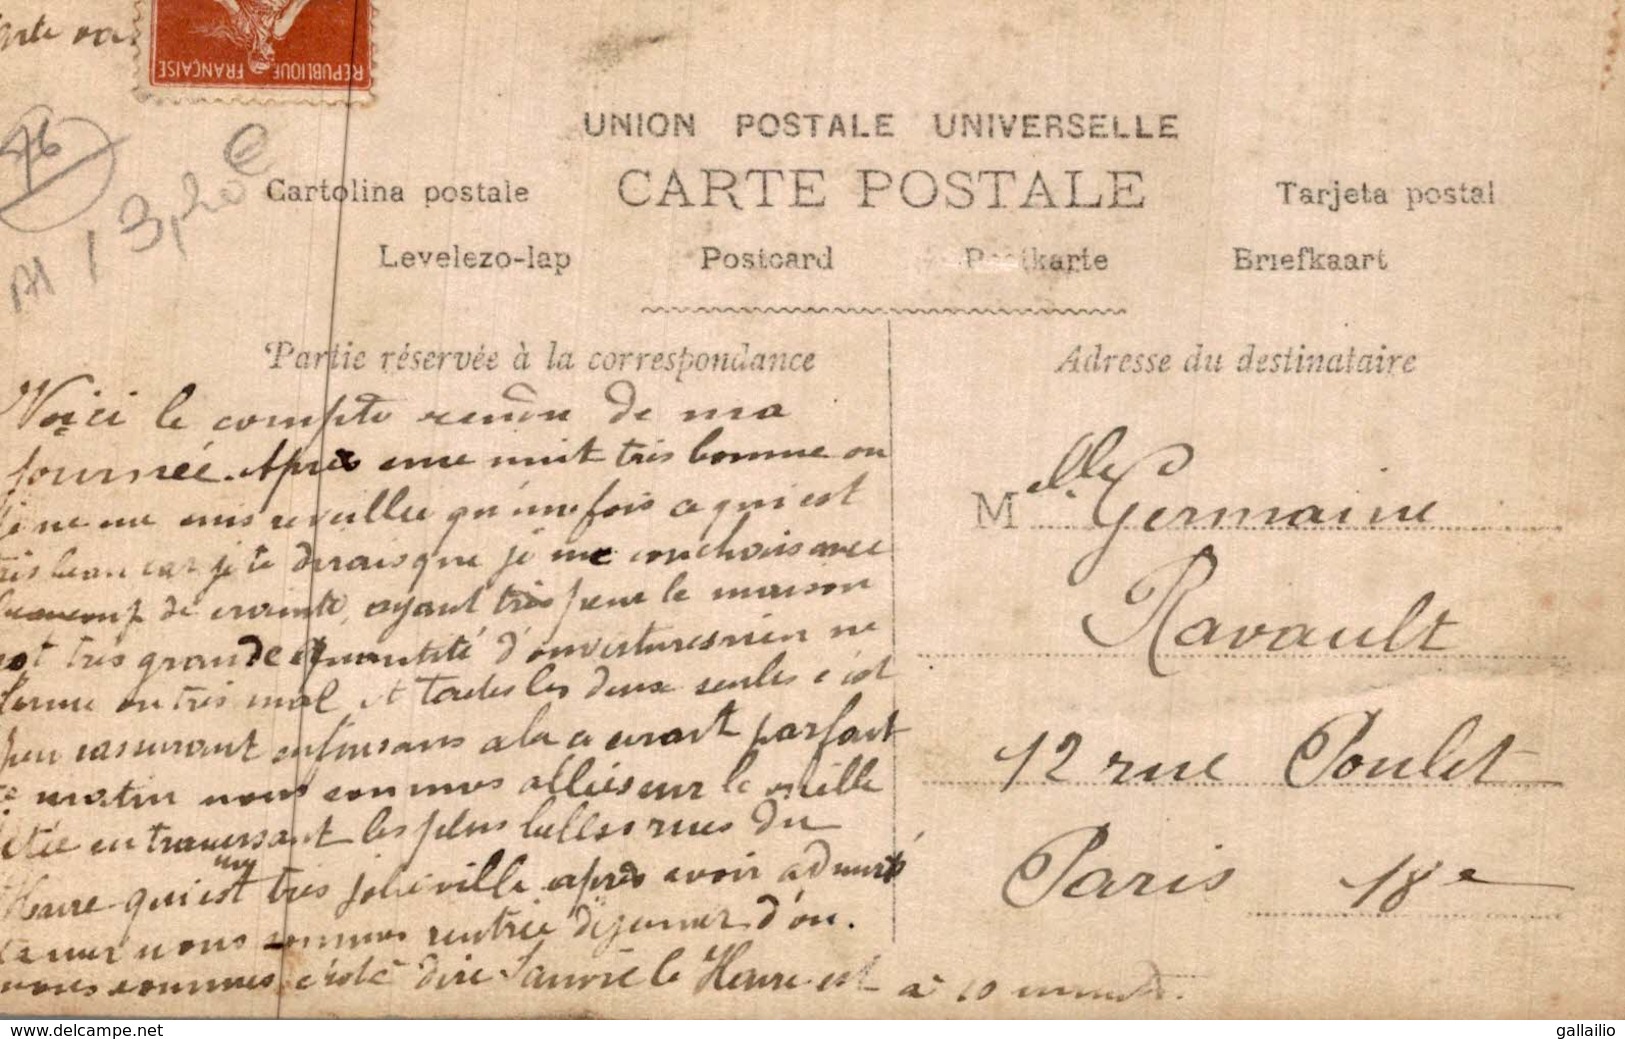 carte
REPUBLIQUE FRANÇAISE
76
A1 / 3,20 €
UNION POSTALE UNIVERSELLE
Cartolina postale CARTE POSTALE Tarjeta postal
Levelezo-lap Postcard Postkarte Briefkaart
Partie réservée à la correspondance
Voici le compte rendu de ma
journée. Après une nuit très bonne on
je ne me suis reveillée qu'une fois ce qui est
très beau car je te dirais que je me couchais avec
beaucoup de crainte, ayant très peur la maison
est très grande quantité d'ouvertures rien ne
ferme ou très mal et toutes les deux seules c'est
peu rassurant enfin sans parfait
ce matin nous sommes allées sur la vieille
jetée en traversant les plus belles rues du
Havre qui est une très jolie ville après avoir admiré
la mer nous sommes rentrée déjeuner d'ou.
nous sommes c'est à dire Sanvic le Havre est à 10 minutes.
Adresse du destinataire
Melle Germaine
Ravault
12 rue Poulet
Paris 18e
www.delcampe.net
gallailio